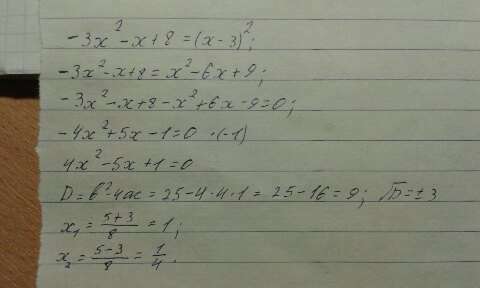 -3x²-x+8=(x-3)²;
-3x²-x+8=x²-6x+9;
-3x²-x+8-x²+6x-9=0;
-4x²+5x-1=0 ·(-1)
4x²-5x+1=0
D=b²-4ac=25-4·4·1=25-16=9; √D=±3
x₁=\frac{5+3}{8}=1;
x₂=\frac{5-3}{8}=\frac{1}{4}.